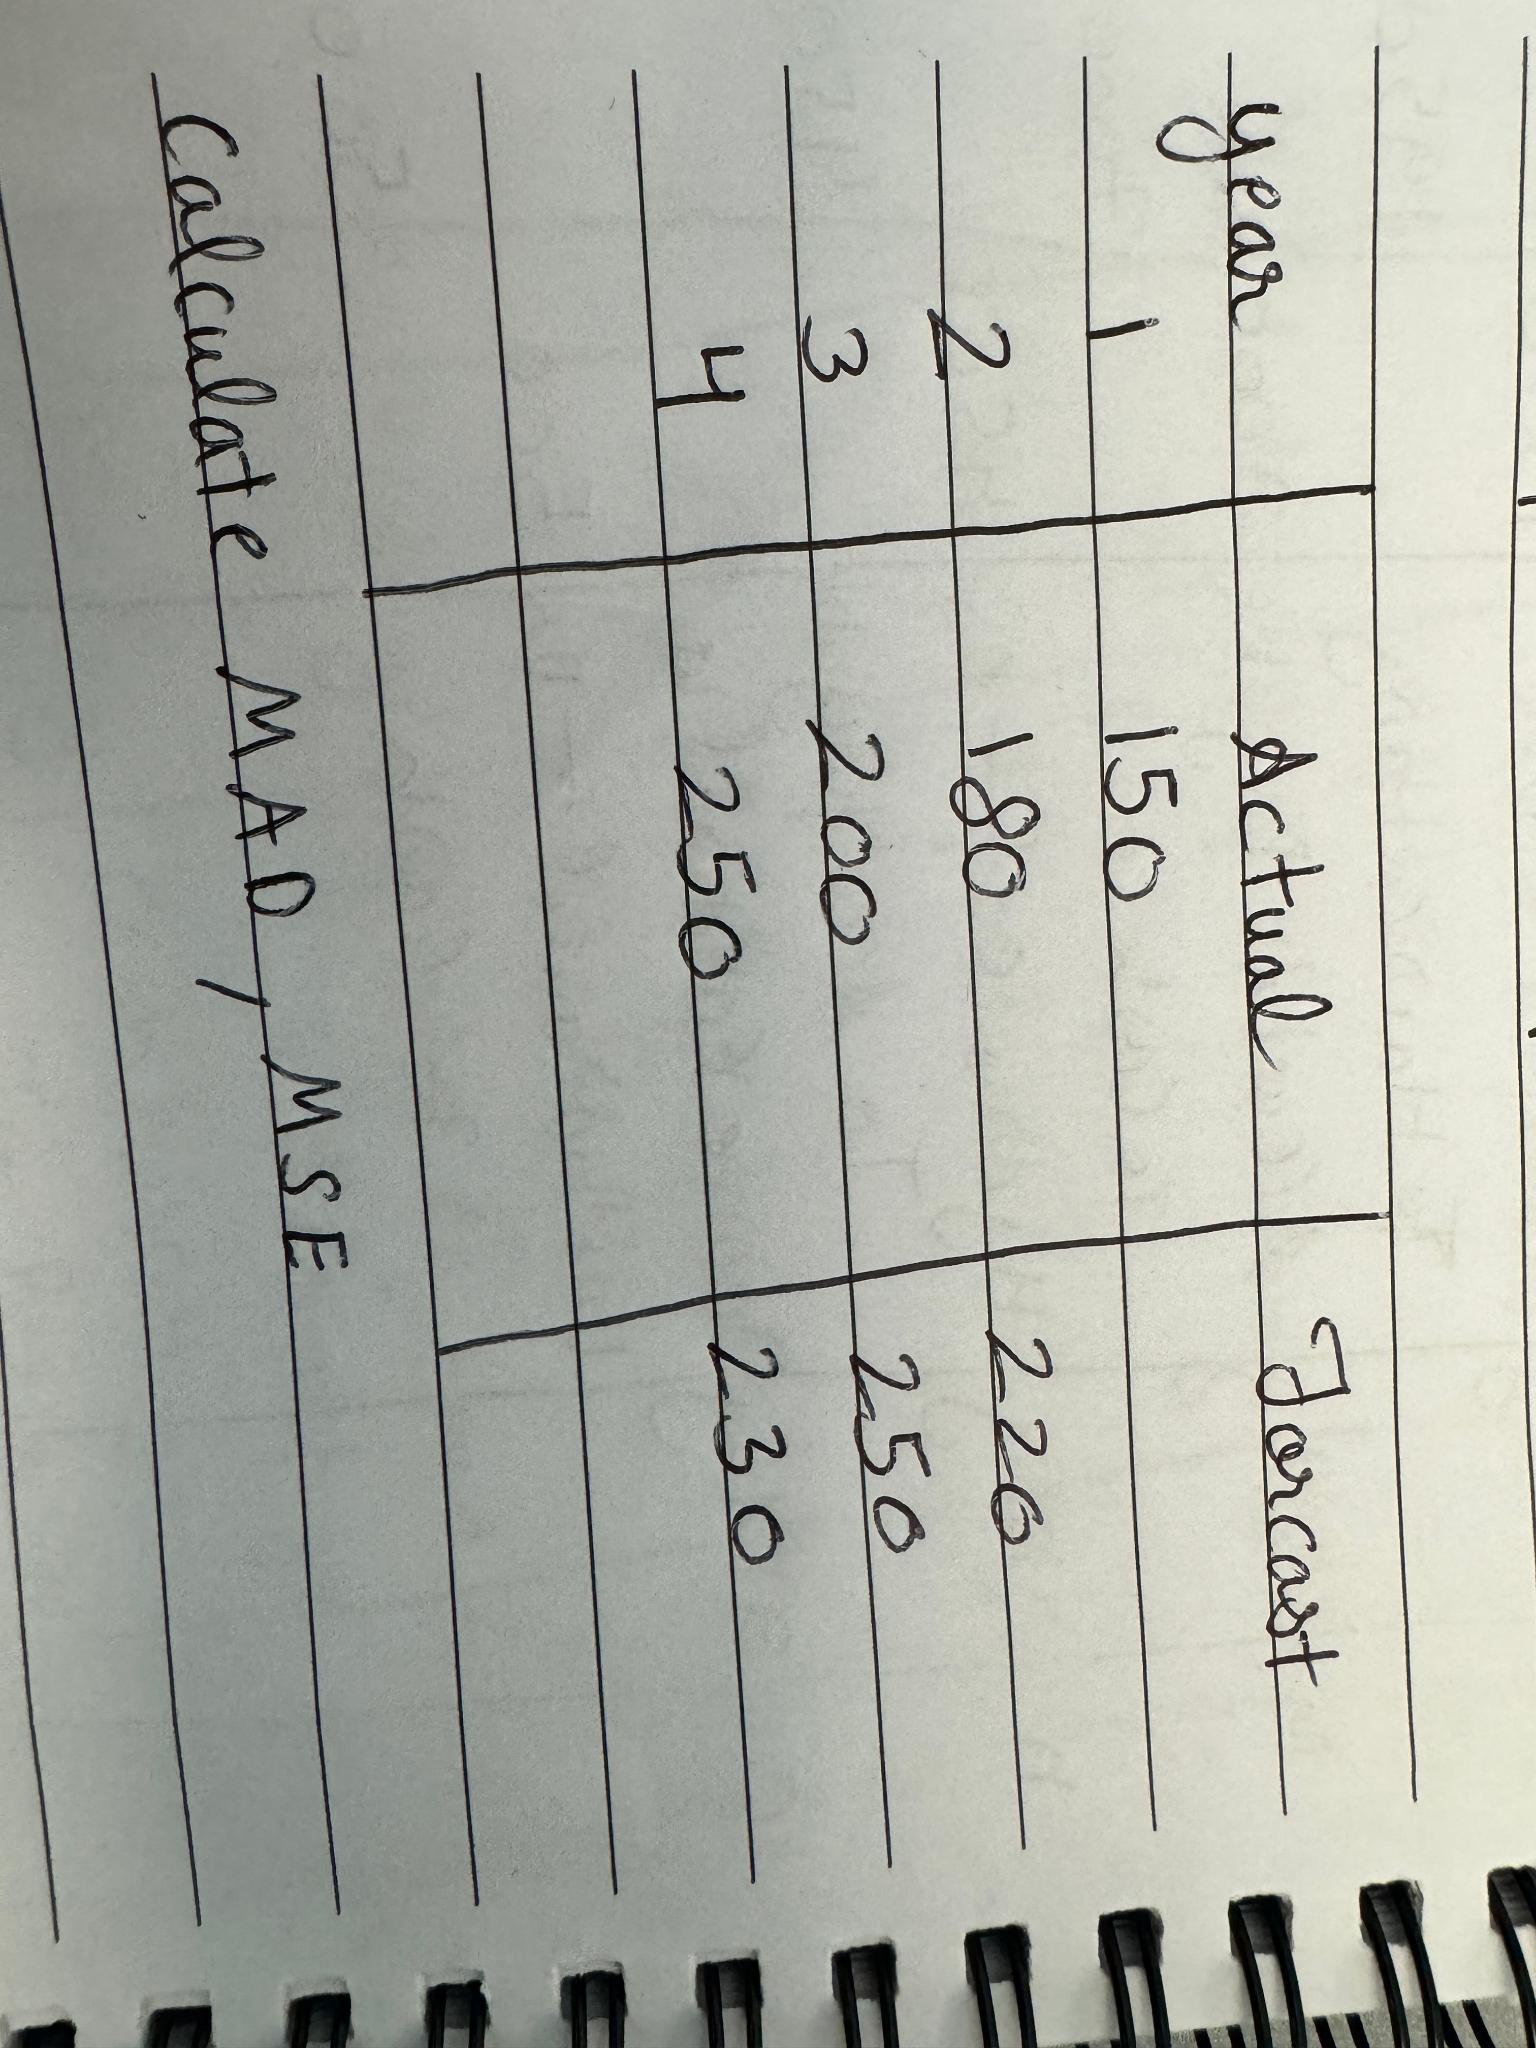 year Actual Forcast
1 150
2 180 220
3 200 250
4 250 230
Calculate MAD, MSE